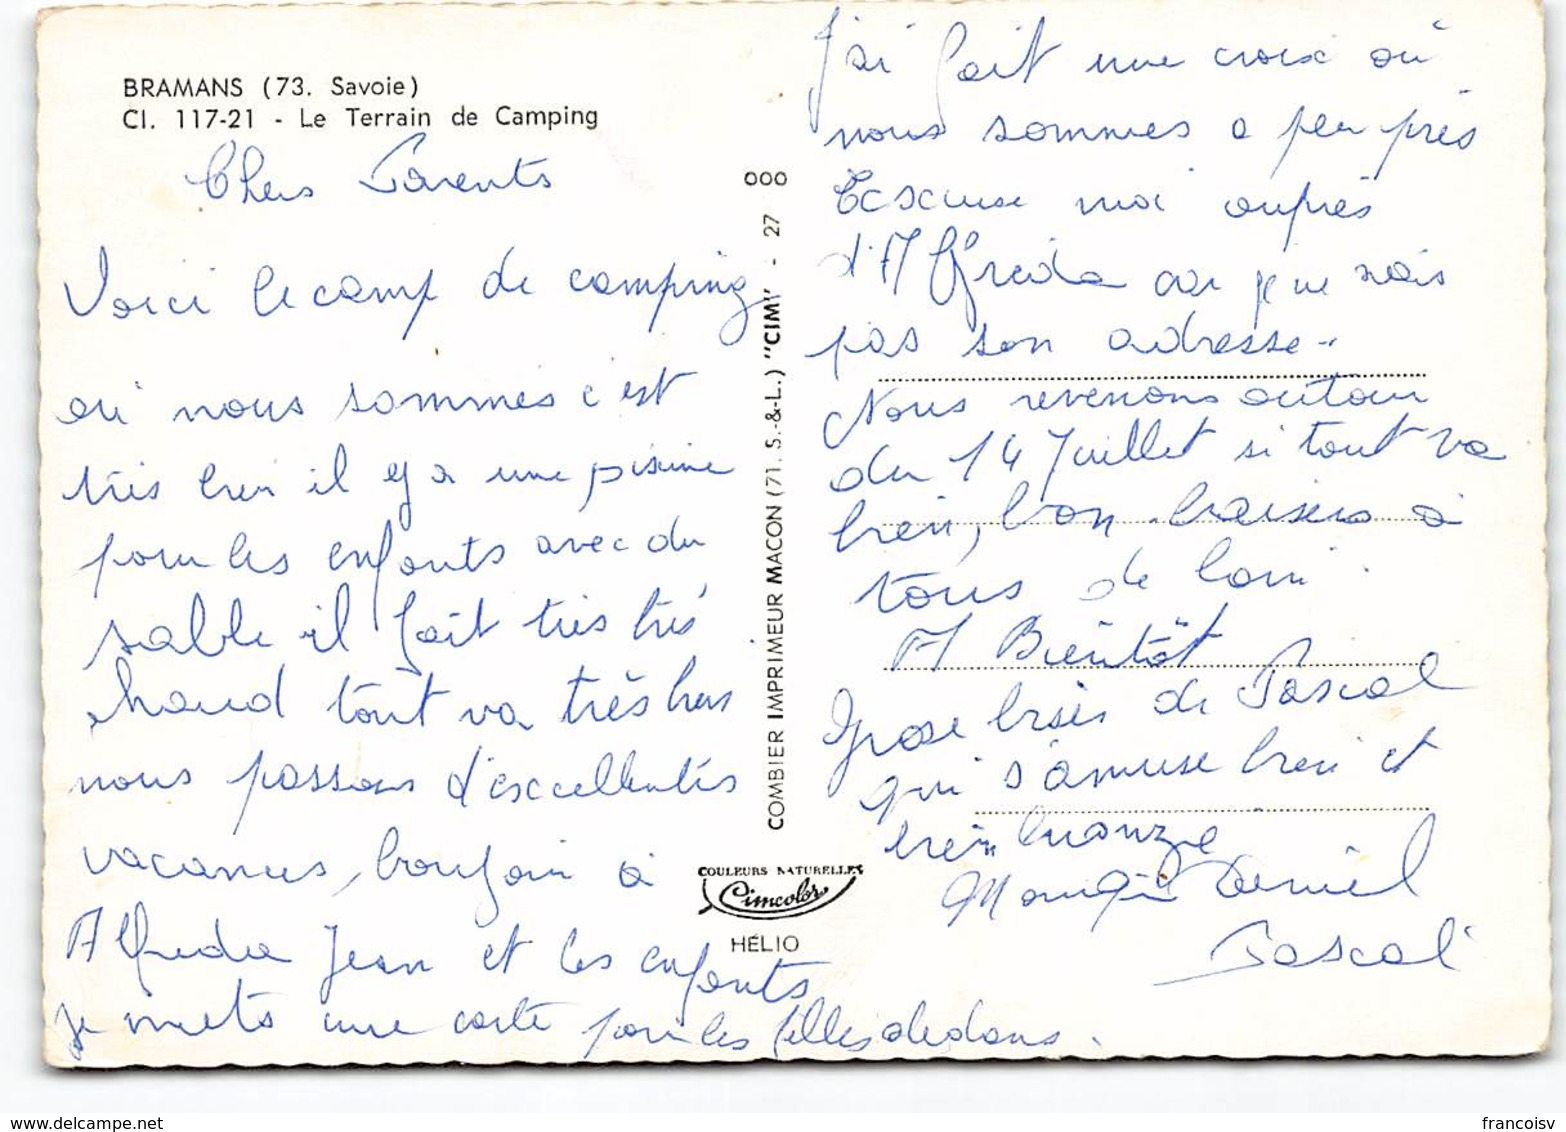 BRAMANS (73. Savoie)
Cl. 117-21 - Le Terrain de Camping
Chers Parents
Voici le camp de camping
où nous sommes c'est
très bien il y a une piscine
pour les enfants avec du
sable il fait très très
chaud tout va très bien
nous passons d'excellentes
vacances, bonjour à
Alfreda Jean et les enfants
je mets une carte pour les filles dedans.
000
COMBIER IMPRIMEUR MACON (71. S.-&-L.) "CIM" - 27
COULEURS NATURELLES
Cimcolor
HÉLIO
J'ai fait une croix où
nous sommes a peu près
Excuse moi auprès
d'Alfreda car je ne sais
pas son adresse..
Nous revenons autour
du 14 Juillet si tout va
bien, bon baisers à
tous de loin
A Bientôt
Grose bises de Pascal
qui s'amuse bien et
bien
Monique Daniel
Pascal
Delcampe.net
francoisv